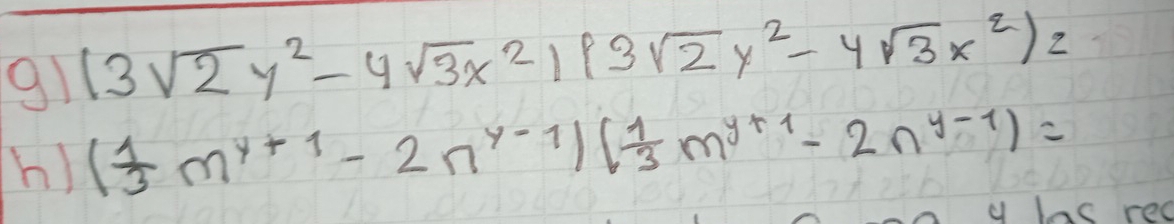 g) (3√2 y² - 4√3 x²) (3√2 y² - 4√3 x²) =
h) (1/3 m^{y+1} - 2n^{y-1}) (1/3 m^{y+1} - 2n^{y-1}) =
y las